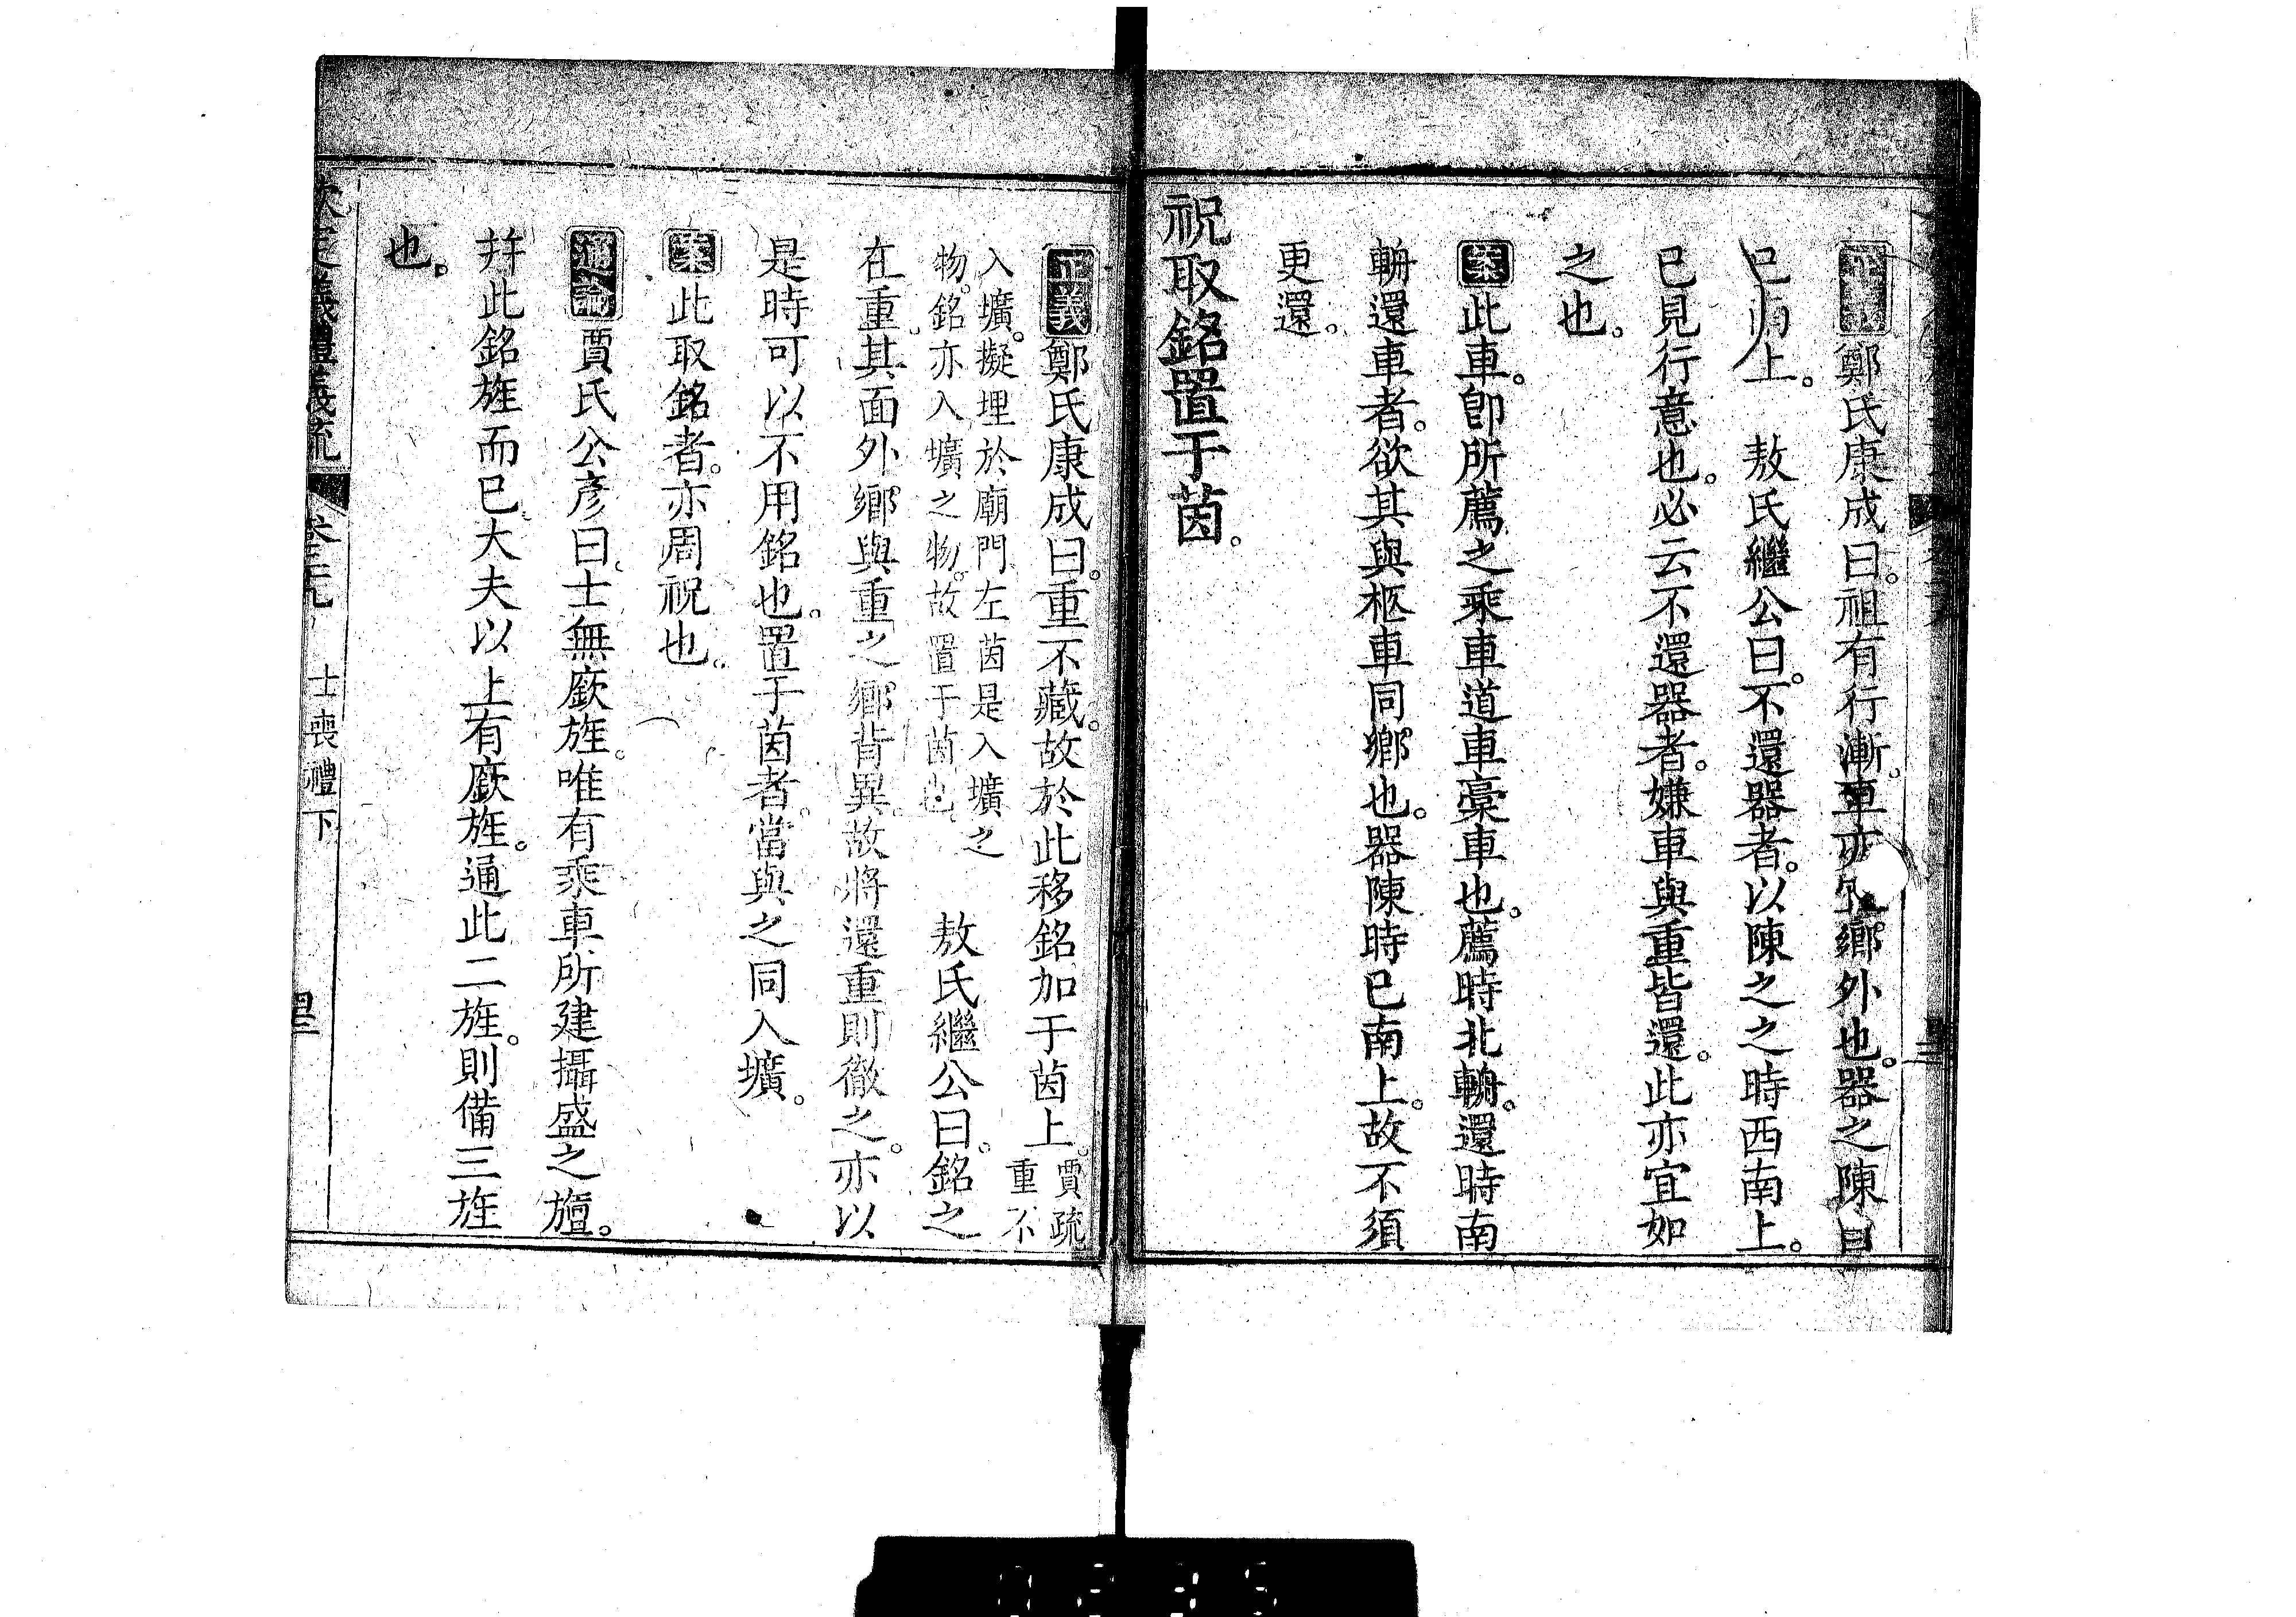 正義鄭氏康成曰。祖有行漸。車亦宜鄉外也。器之陳自
已南上。　敖氏繼公曰。不還器者。以陳之之時西南上。
已見行意也。必云不還器者。嫌車與重皆還。此亦宜如
之也。
案此車。卽所薦之乘車道車槀車也。薦時北輈。還時南
輈還車者。欲其與柩車同鄉也。器陳時已南上。故不須
更還。
祝取銘置于茵。
正義鄭氏康成曰。重不藏。故於此移銘加于茵上。賈疏
重不
入壙。擬埋於廟門左茵是入壙之
物。銘亦入壙之物。故置于茵也。　敖氏繼公曰。銘之
在重。其面外鄉與重之鄉背異。故將還重則徹之。亦以
是時可以不用銘也。置于茵者。當與之同入壙。
案此取銘者。亦周祝也。
通論賈氏公彥曰。士無廞旌。唯有乘車所建攝盛之旜。
幷此銘旌而已。大夫以上有廞旌。通此二旌。則備三旌
也。
欽定儀禮義疏　卷三十九　士喪禮下